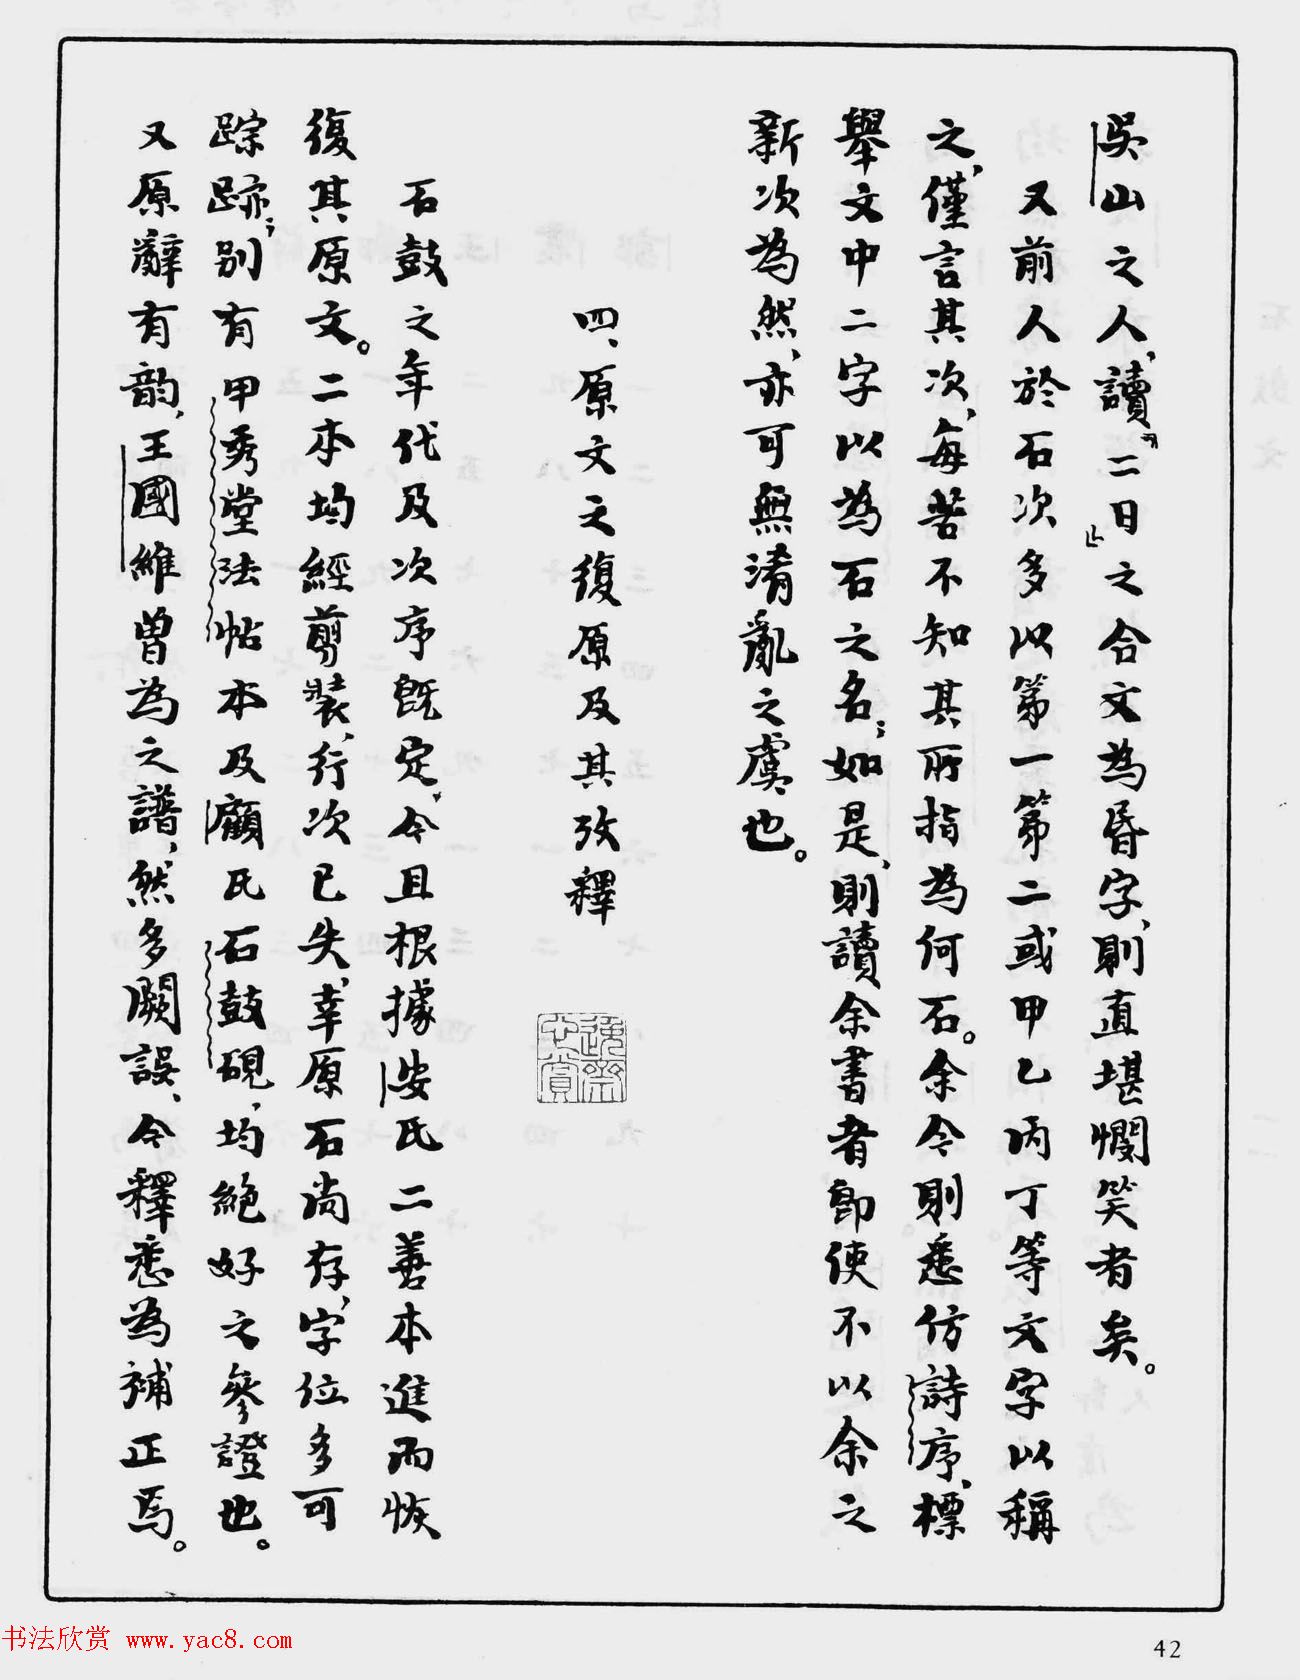 吳山之人，讀『二日』之合文為昏字，則直堪憫笑者矣。
又前人於石次多以第一第二或甲乙丙丁等文字以稱
之，僅言其次，每苦不知其所指為何石。余今則悉仿詩序，標
舉文中二字以為石之名；如是，則讀余書者即使不以余之
新次為然，亦可無淆亂之虞也。
四、原文之復原及其攷釋
石鼓之年代及次序既定，今且根據安氏二善本進而恢
復其原文。二本均經剪裝，行次已失，幸原石尚存，字位多可
踪跡；別有甲秀堂法帖本及顧氏石鼓硯，均絕好之參證也。
又原辭有韵，王國維曾為之譜，然多闕誤、今釋悉為補正焉。
書法欣赏 www.yac8.com
42